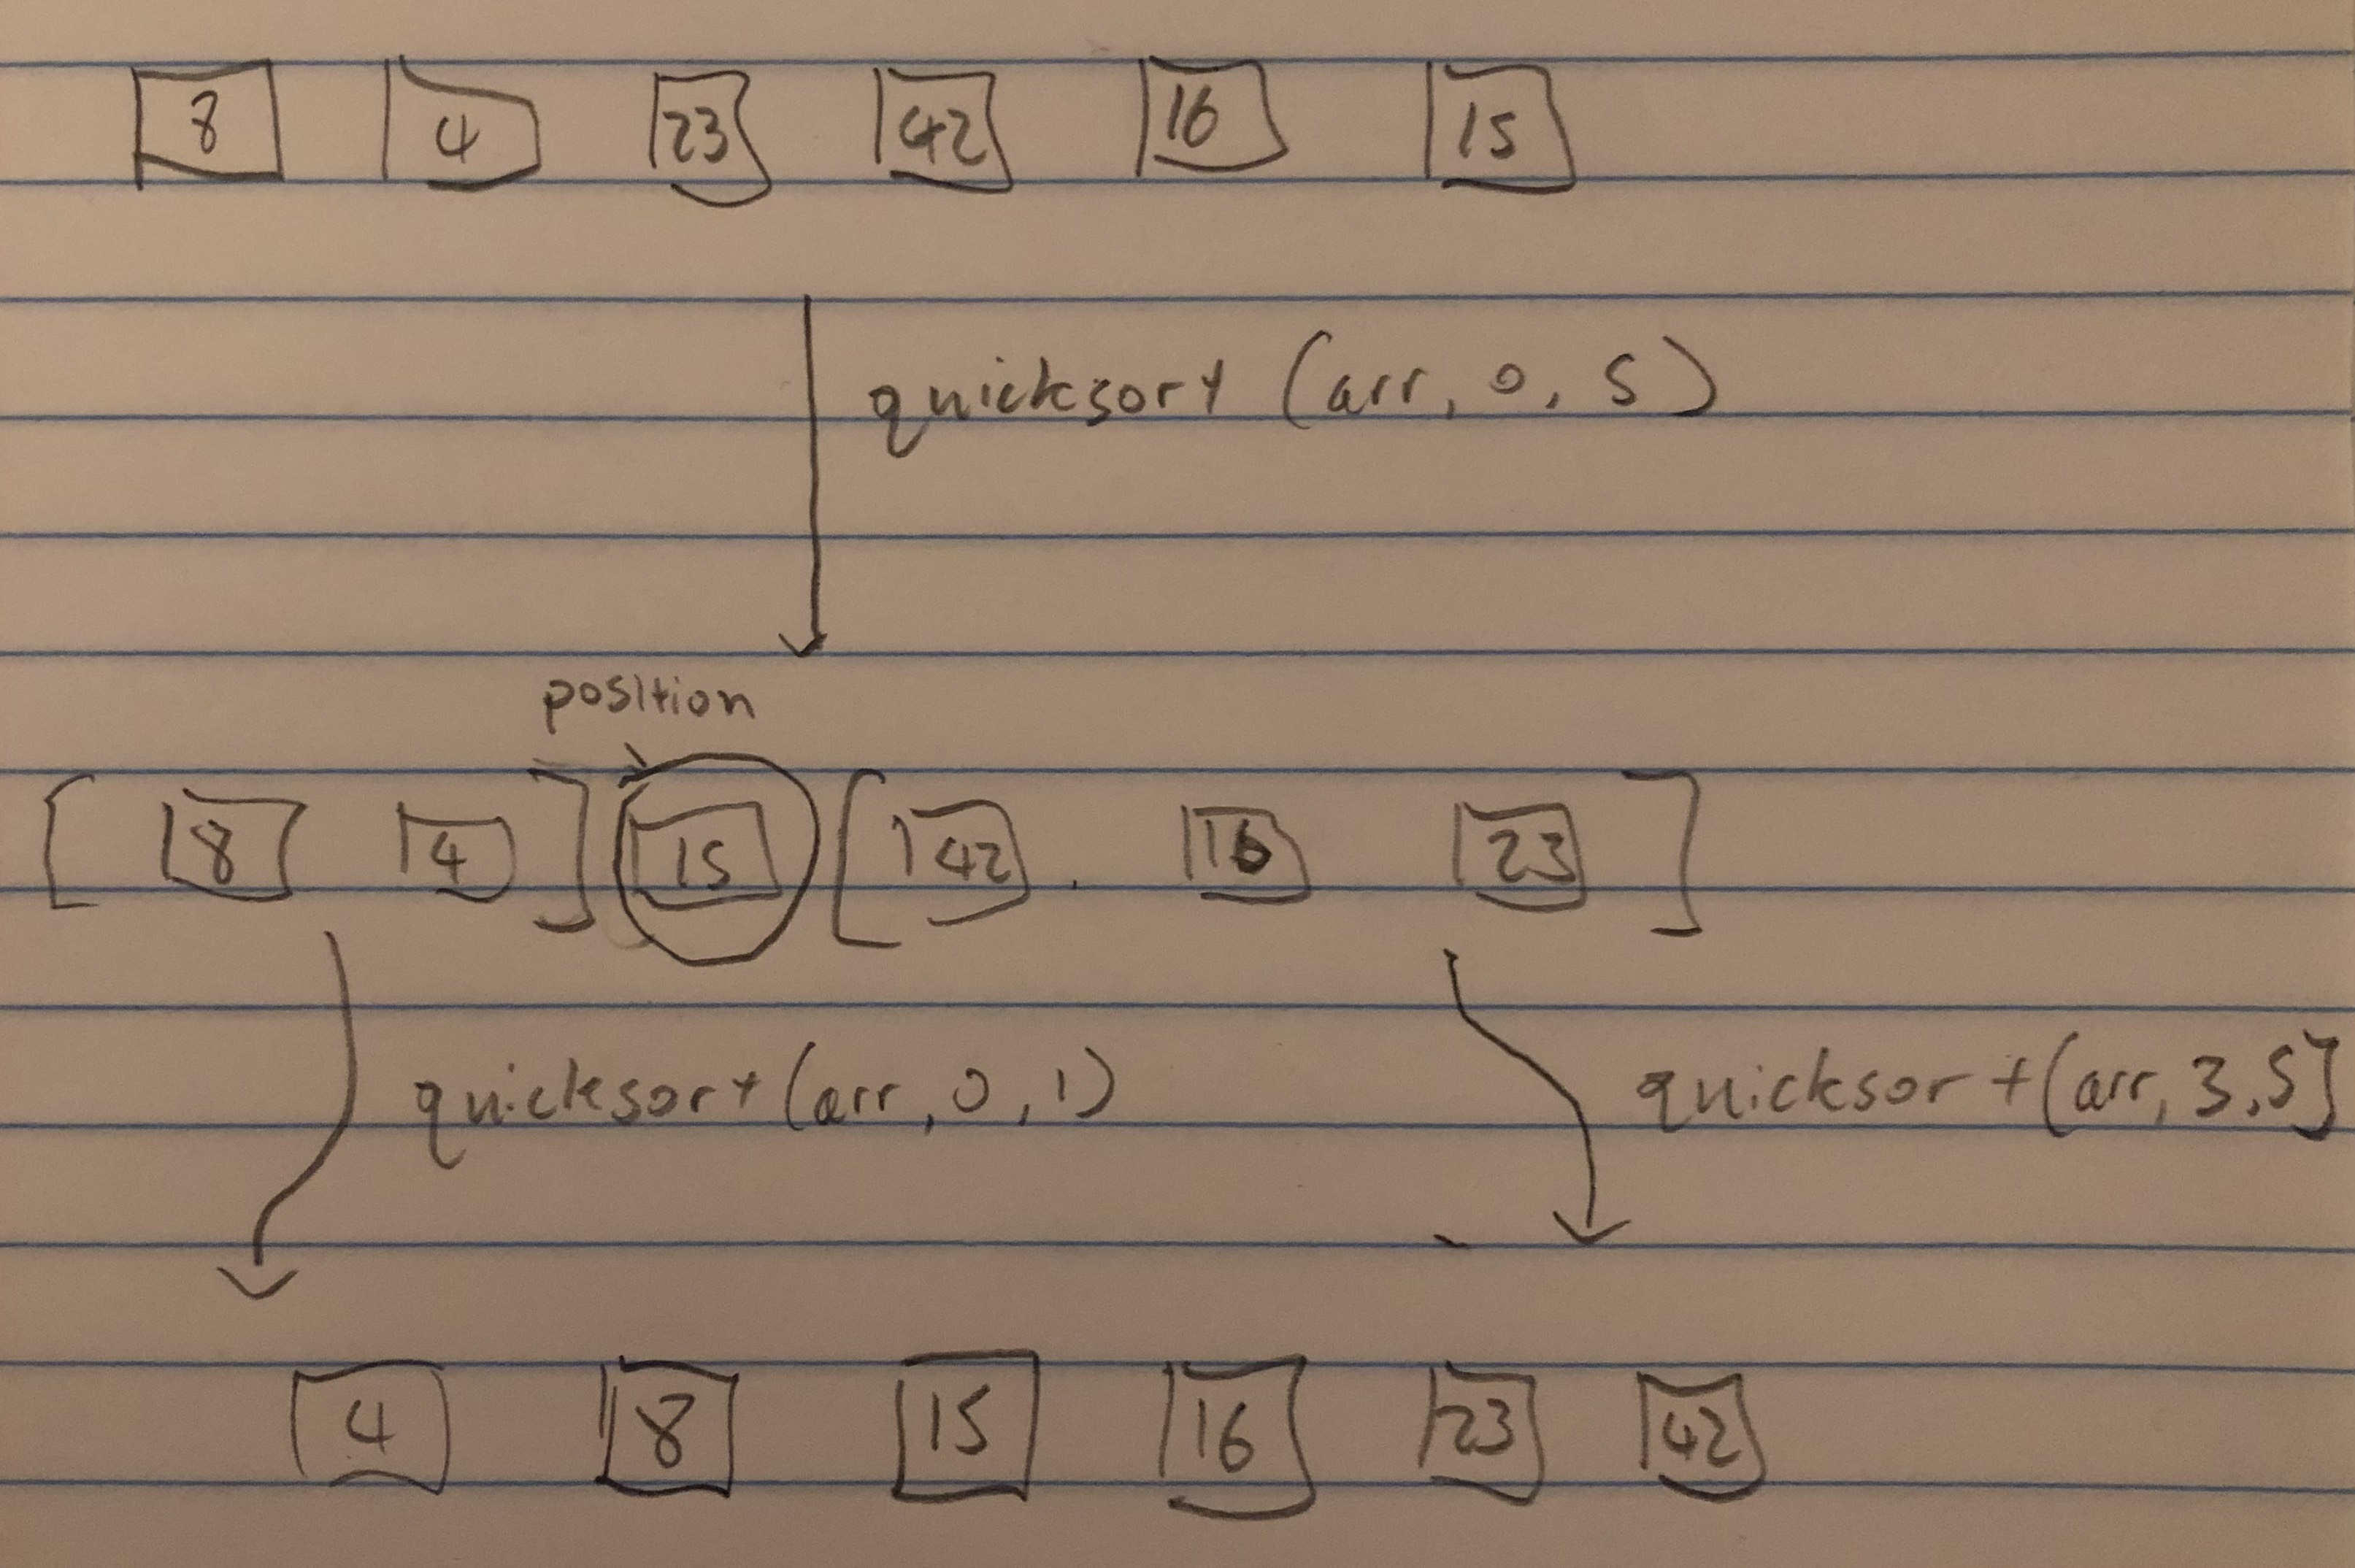 8 4 23 42 16 15
quicksort (arr, 0, 5)
position
[ 8 4 ] 15 [ 42 . 16 23 ]
quicksort(arr, 0, 1) quicksort(arr, 3, 5]
4 8 15 16 23 42